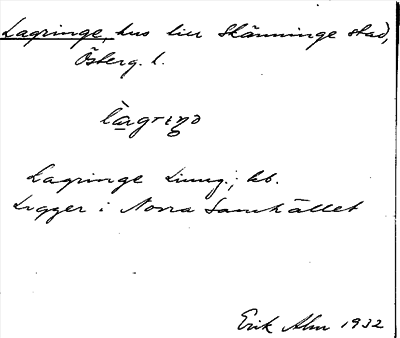 Lagringe, hus liu Skänninge stad,
Österg. l.
làgrıŋə
Lagringe Ljung.; kb.
Ligger i Norra Samhället
Erik Alm 1932